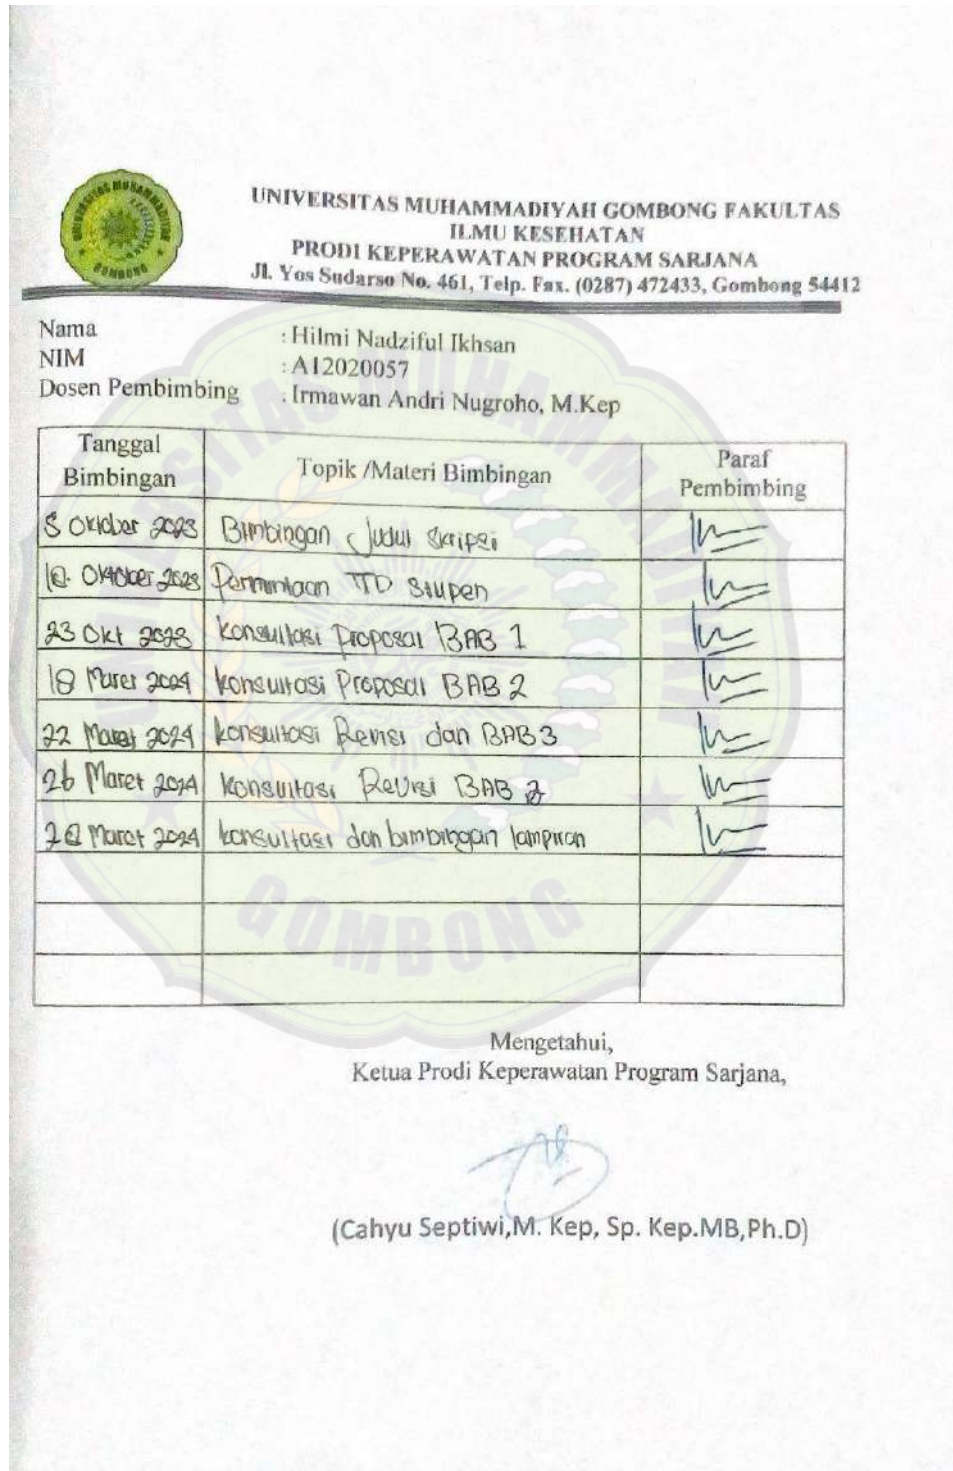 UNIVERSITAS MUHAMMADIYAH GOMBONG
UNIVERSITAS MUHAMMADIYAH GOMBONG FAKULTAS
ILMU KESEHATAN
PRODI KEPERAWATAN PROGRAM SARJANA
Jl. Yos Sudarso No. 461, Telp. Fax. (0287) 472433, Gombong 54412
Nama : Hilmi Nadziful Ikhsan
NIM : A12020057
Dosen Pembimbing : Irmawan Andri Nugroho, M.Kep
Tanggal Bimbingan Topik /Materi Bimbingan Paraf Pembimbing
Oktober 2023 Bimbingan Judul Skripsi
Oktober 2023 Permintaan TTD Stupen
23 Okt 2023 konsultasi Proposal BAB 1
18 Maret 2024 konsultasi Proposal BAB 2
22 Maret 2024 konsultasi Revisi dan BAB 3
26 Maret 2024 konsultasi Revisi BAB
Maret 2024 konsultasi dan bimbingan lampiran
UNIVERSITAS MUHAMMADIYAH
GOMBONG
Mengetahui,
Ketua Prodi Keperawatan Program Sarjana,
(Cahyu Septiwi,M. Kep, Sp. Kep.MB,Ph.D)